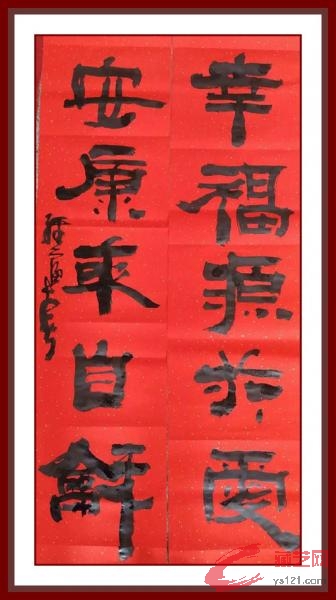 幸福源於愛
安康来自龢
ys121.com